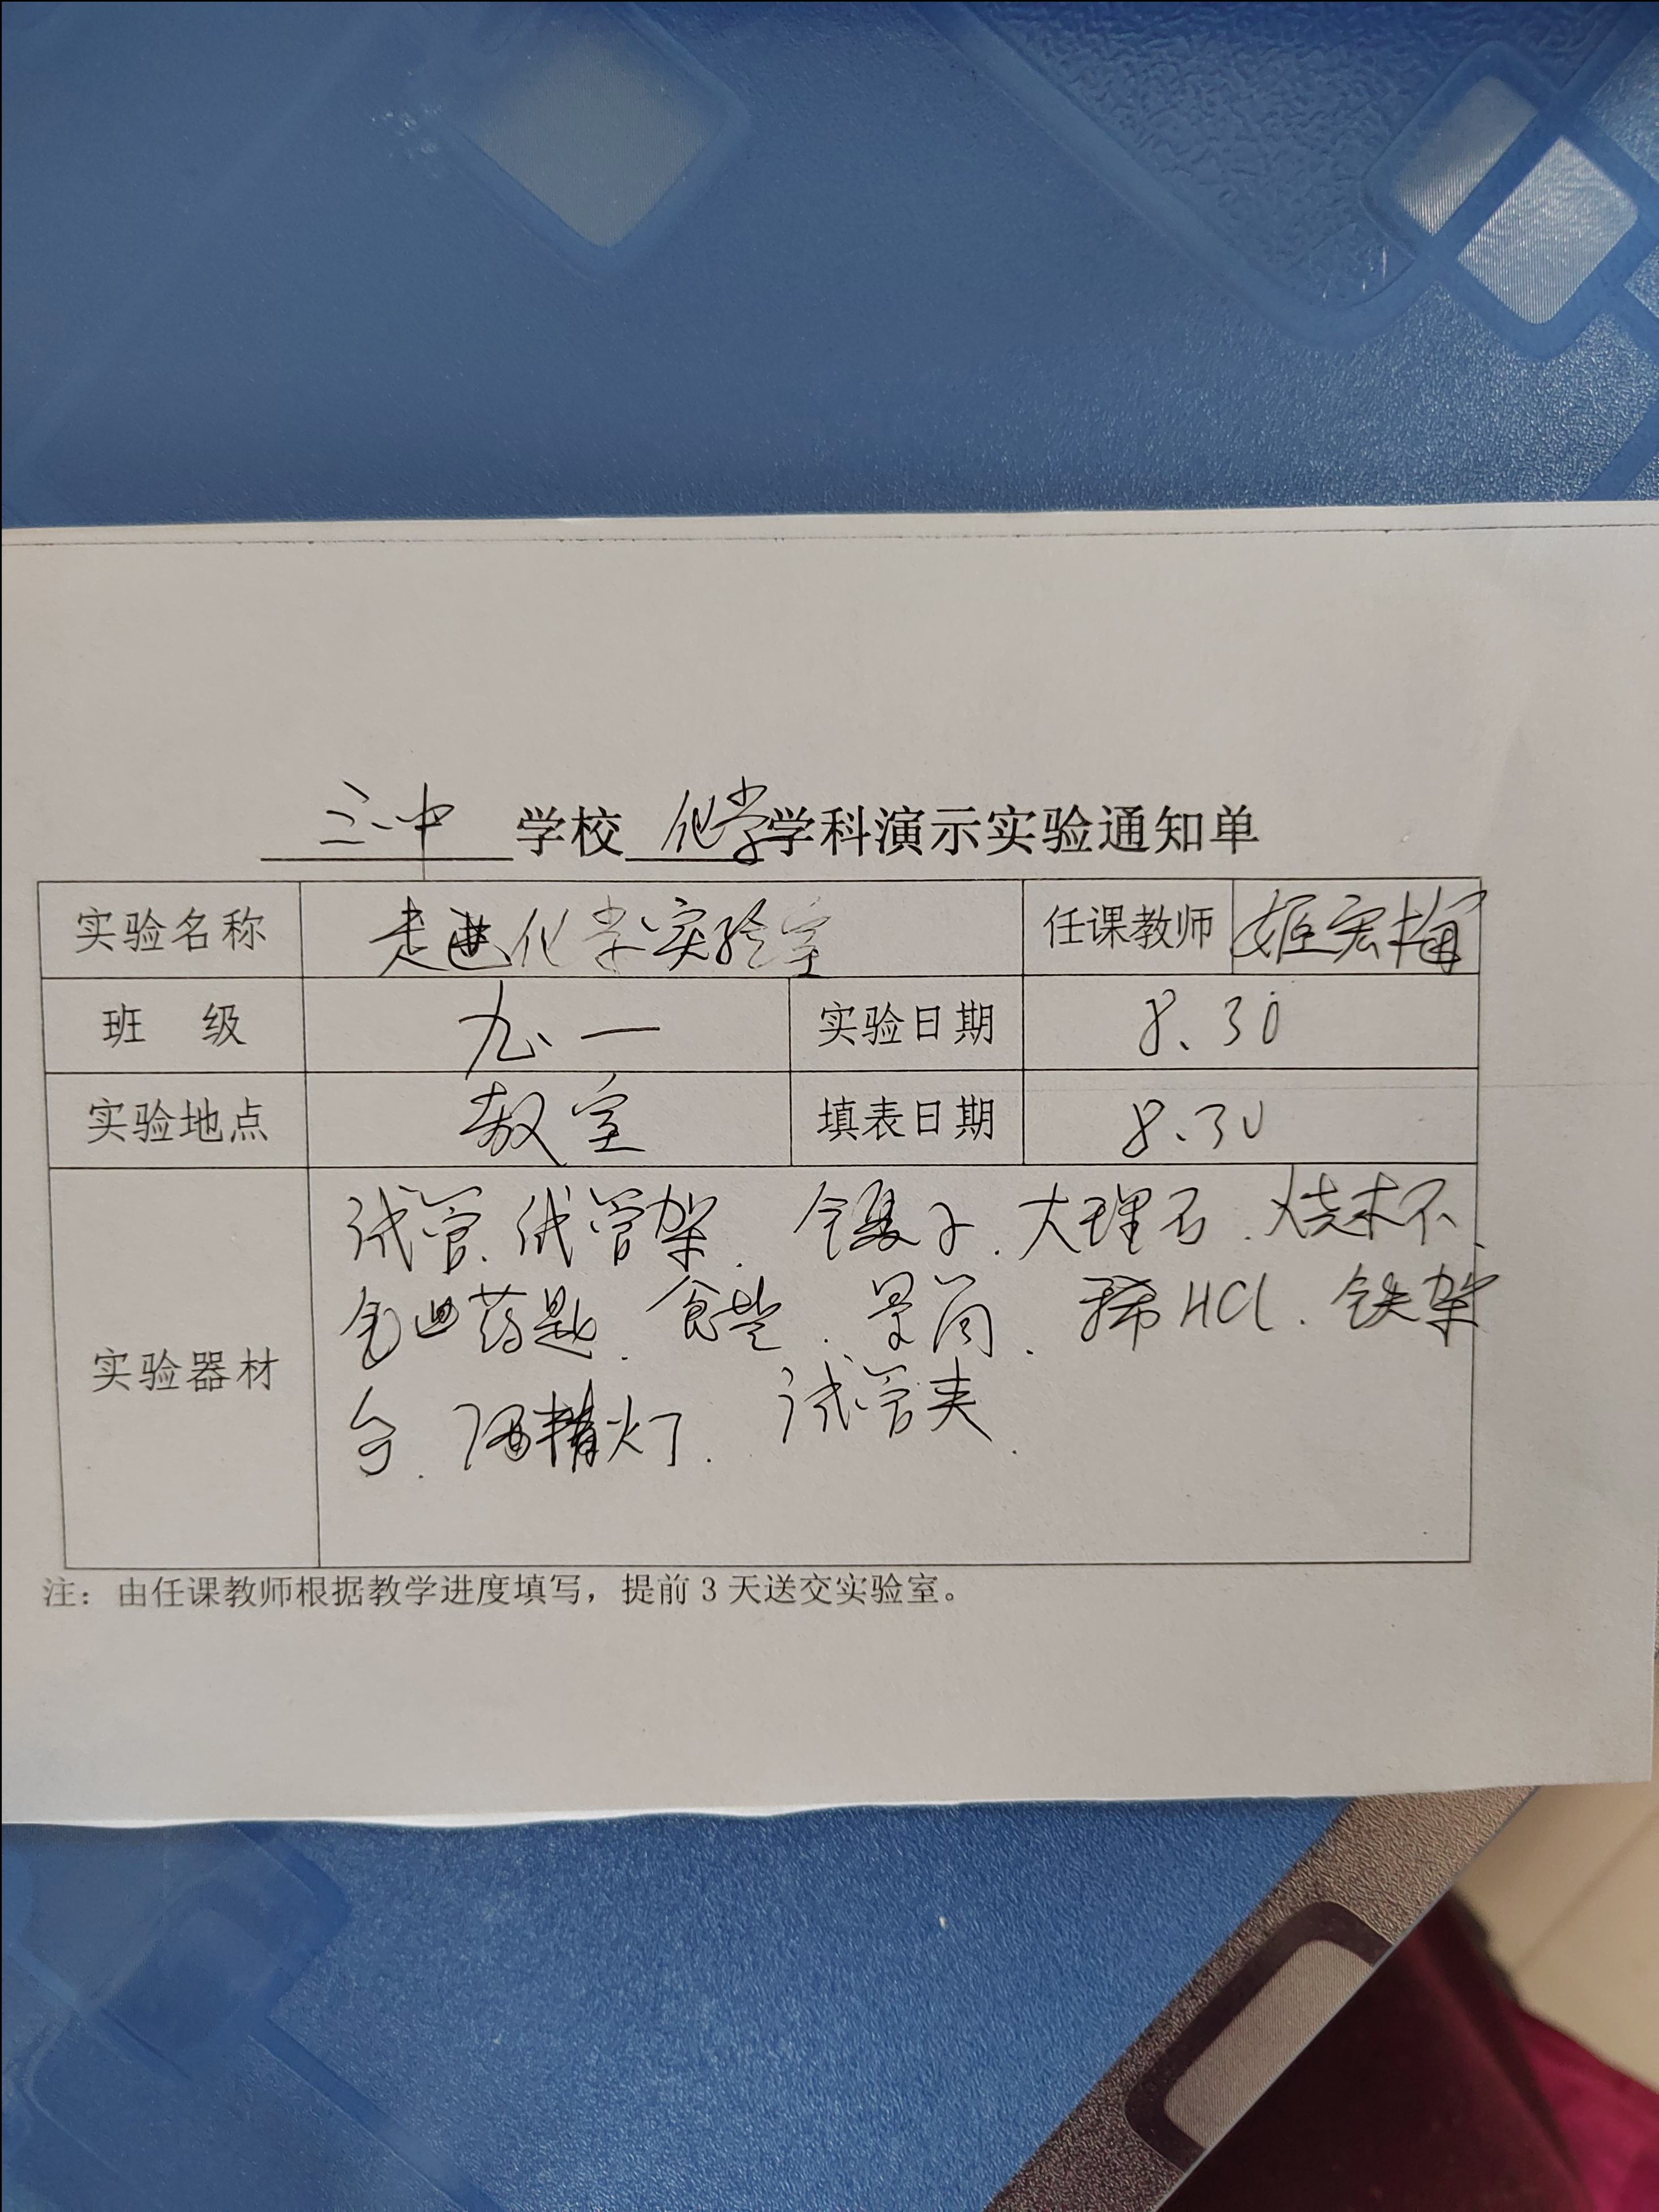 三中 学校 化学 学科演示实验通知单
实验名称 走进化学实验室 任课教师 姬宏梅
班 级 九、一 实验日期 8.30
实验地点 教室 填表日期 8.30
试管、试管架. 镊子. 大理石. 烧杯、
药匙. 食盐. 量筒. 稀HCl. 铁架
实验器材
台. 酒精灯. 试管夹.
注：由任课教师根据教学进度填写，提前 3 天送交实验室。